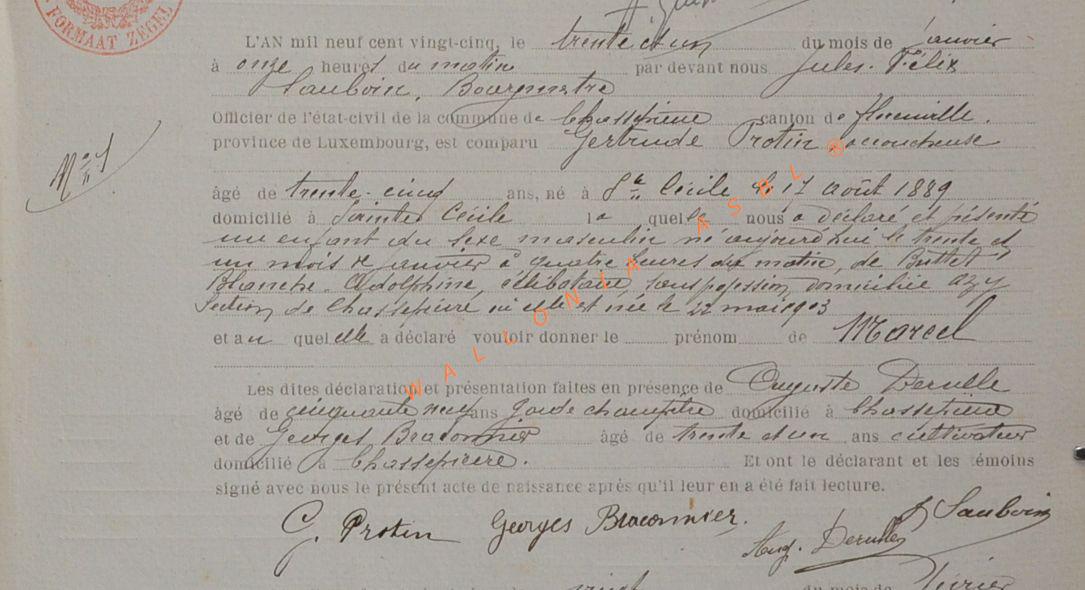 FORMAAT ZEGEL
L'AN mil neuf cent vingt-cinq, le trente et un du mois de janvier
à onze heures du matin par devant nous Jules Félix
Sauboin, Bourgmestre
Officier de l'état-civil de la commune de Chassepierre canton de Florenville.
province de Luxembourg, est comparu Gertrude Protin accoucheuse
N° 1
âgé de trente-cinq ans, né à Ste Cécile le 17 août 1889
domicilié à Sainte Cécile laquelle nous a déclaré et présenté
un enfant du sexe masculin né aujourd'hui le trente et
un mois de janvier à quatre heures du matin, de Buttet
Blanche Adolphine, célibataire, sans profession, domiciliée Azy
Section de Chassepierre où elle est née le 22 mai 1903
et au quel elle a déclaré vouloir donner le prénom de Marcel
Les dites déclaration et présentation faites en présence de Auguste Derulle
âgé de cinquante neuf ans garde champêtre domicilié à Chassepierre
et de Georges Braconnier âgé de trente et un ans cultivateur
domicilié à Chassepierre. Et ont le déclarant et les témoins
signé avec nous le présent acte de naissance après qu'il leur en a été fait lecture.
G. Protin Georges Braconnier. J Sauboin
Aug. Derulle
vingt du mois de février
WALLONIA ASBL ®